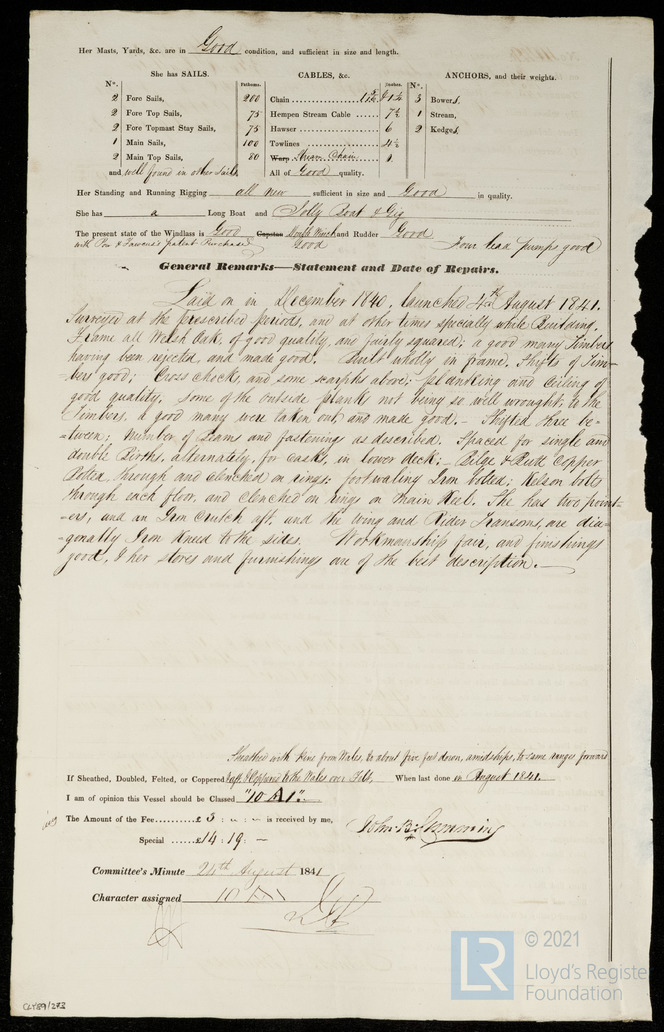 Her Masts, Yards, &c. are in Good condition, and sufficient in size and length.
She has SAILS.
CABLES, &c.
ANCHORS, and their weights.
N°.
Fathoms.
Inches.
N°.
2 Fore Sails, 200 Chain 1 1/2 3 Bowers,
2 Fore Top Sails, 75 Hempen Stream Cable 7 1/2 1 Stream,
2 Fore Topmast Stay Sails, 75 Hawser 6 2 Kedges,
1 Main Sails, 100 Towlines 4 1/2
2 Main Top Sails, 80 Warp Stream Chain 1
and well found in other sails All of Good quality.
Her Standing and Running Rigging all new sufficient in size and Good in quality.
She has a Long Boat and Jolly Boat & Gig
The present state of the Windlass is Good Capstan Double Winch and Rudder Good
with Pow & Fawcus's patent Purchase Good Four lead pumps good
General Remarks—Statement and Date of Repairs.
Laid on in December 1840, launched 4th August 1841.
Surveyed at the prescribed periods, and at other times specially while Building.
Frame all Welsh Oak, of good quality, and fairly squared; a good many Timbers
having been rejected, and made good. Built wholly on frame, Shifts of Tim-
-bers good; Cross chock, and some scarphs above; Planking and Ceiling of
good quality. Some of the outside planks not being so well wrought, to the
Timbers, a good many were taken out, and made good.- Shifted three be-
-tween; number of Beams and fastenings as described. Spaced for single and
double Births, alternately, for casks, in lower deck:- Bilge & Butt Copper
Bolted, through and clenched on rings: footwaling Iron bolted; Kelson bolts
through each floor, and clenched on rings on Main Keel. She has two point-
-ers, and an Iron Crutch aft, and the wing and Rider Transoms, are dia-
-gonally Iron Kneed to the sides. Workmanship fair, and finishings
good, & her stores and furnishings are of the best description.-
Sheathed with Pine from Wales, to about five feet down, amidships, to same ranges forward
If Sheathed, Doubled, Felted, or Coppered & aft. & Coppered to the Wales over Felt, When last done in August 1841.
I am of opinion this Vessel should be Classed "10 A 1".
The Amount of the Fee £5 : - : - is received by me,
Special £14 : 19 : -
Committee's Minute 24th August 1841
Character assigned 10 A1
CLY89/273
LR © 2021
Lloyd's Register
Foundation